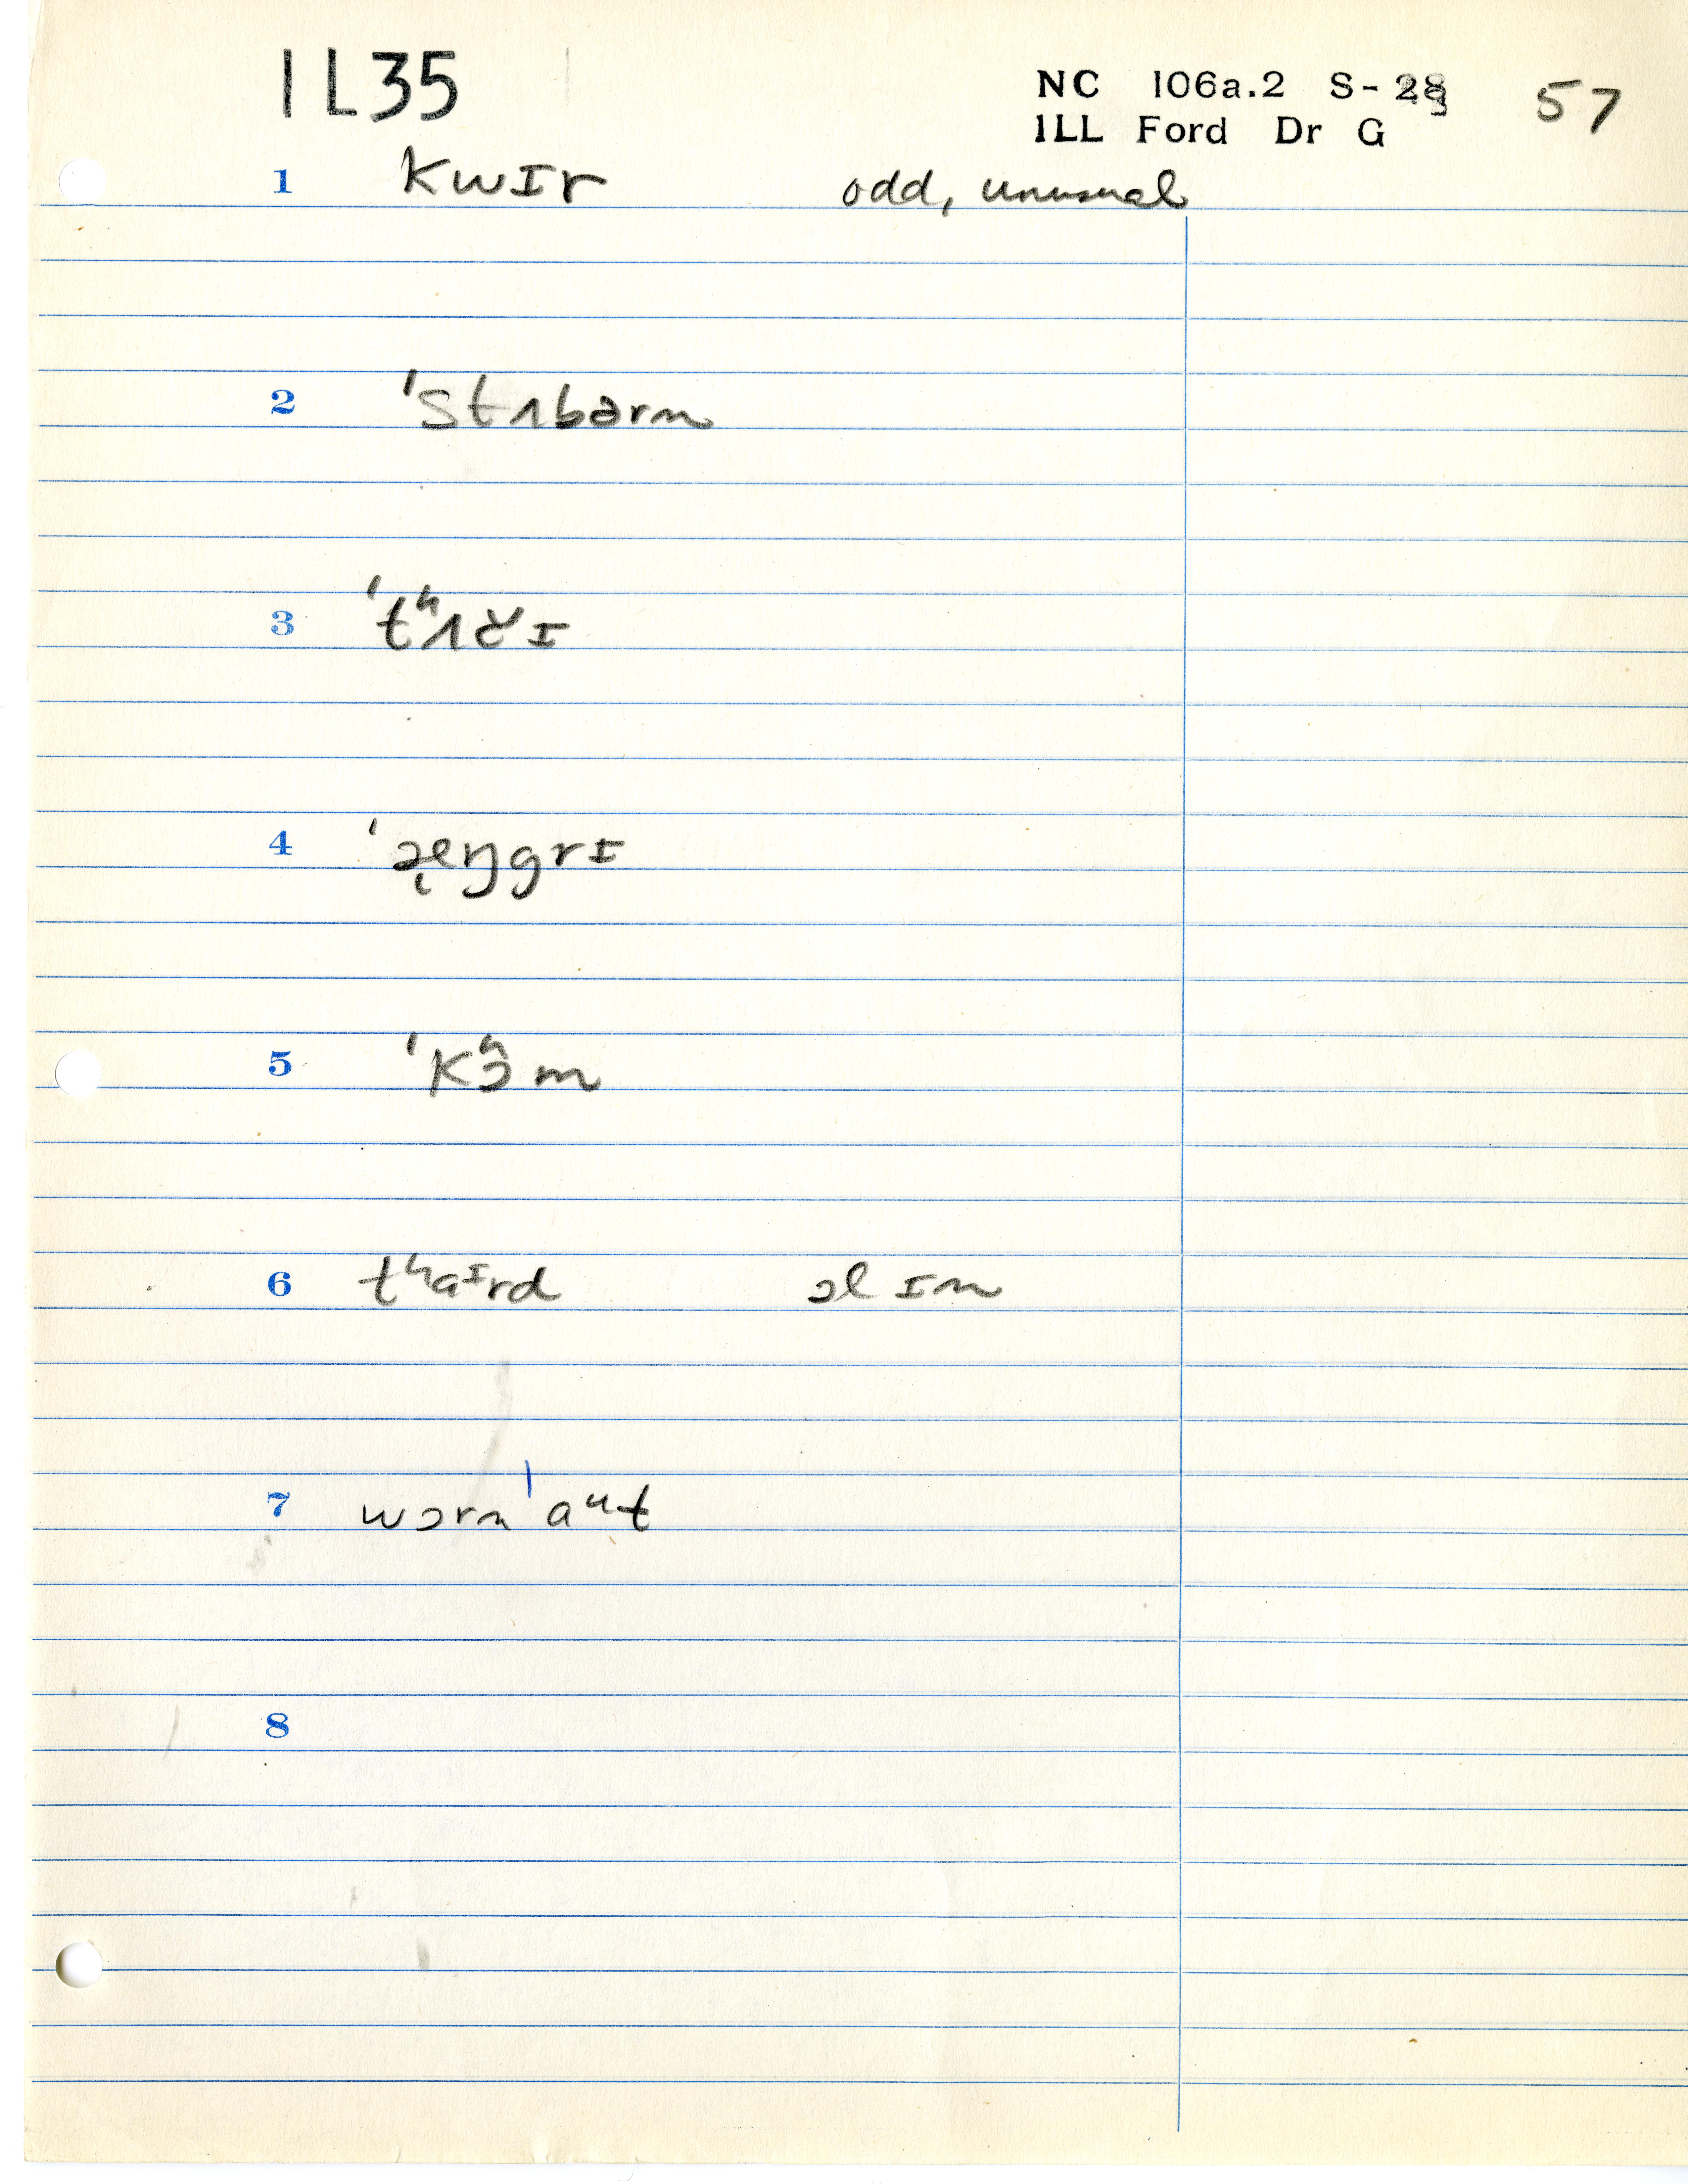 IL35
NC 106a.2 S-28 57
ILL Ford Dr G
1 kwɪr odd, unusual
2 ˈstʌbərn
3 ˈtʰʌčɪ
4 ˈæ̨ŋgrɪ
5 ˈkʰɔm
6 tʰaᶦrd ɔl ɪn
7 wɔrn ˈaᵘt
8